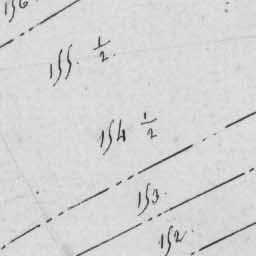 156
155. 1/2.
154 1/2
153.
152.